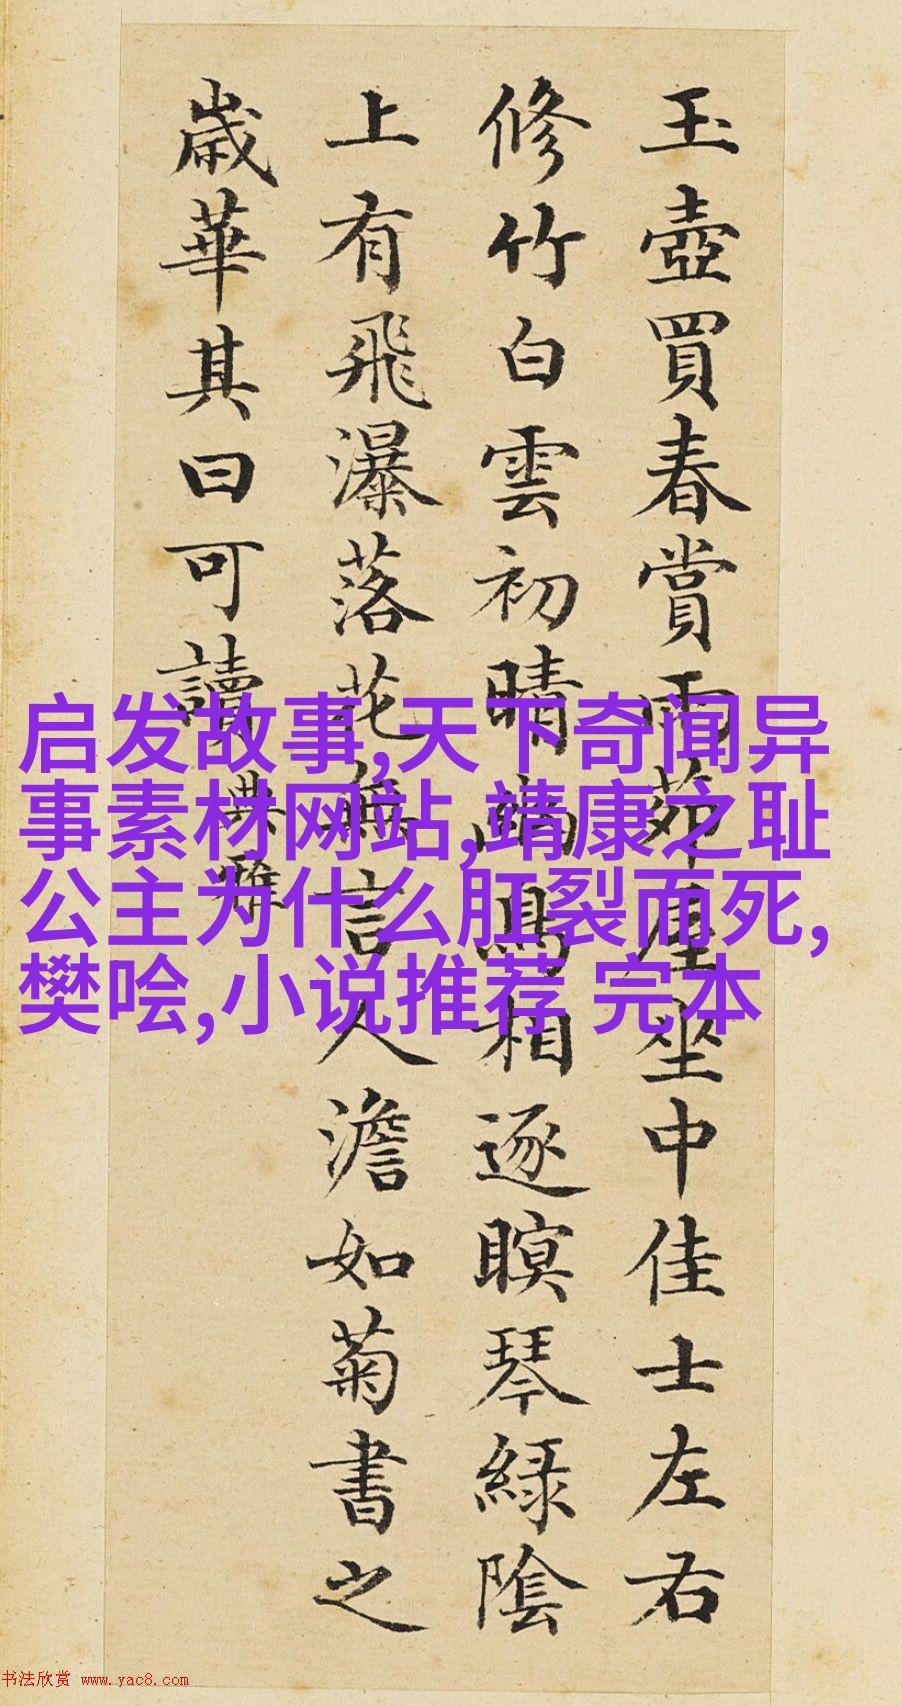 玉壺買春賞雨茆屋坐中佳士左右
修竹白雲初晴幽鳥相逐瞑琴綠陰
上有飛瀑落花無言人澹如菊書之
歲華其曰可讀 典雅
启发故事,天下奇闻异
事素材网站,靖康之耻
公主为什么肛裂而死,
樊哙,小说推荐 完本
书法欣赏 www.yac8.com